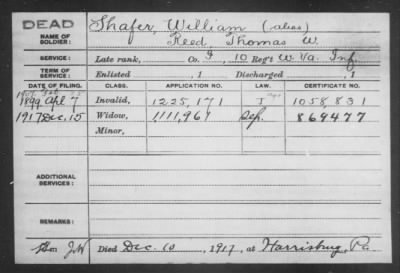 DEAD
NAME OF SOLDIER: Shafer, William (alias)
Reed, Thomas W.
SERVICE: Late rank, Co. I, 10 Reg't W. Va. Inf.
TERM OF SERVICE: Enlisted , 1 Discharged , 1
DATE OF FILING. CLASS. APPLICATION NO. LAW. CERTIFICATE NO.
1899 Apl 7 Invalid, 1225,171 J 1058,831
1917 Dec. 15 Widow, 1,111,967 Sep. 869477
Minor,
ADDITIONAL SERVICES:
REMARKS:
Died Dec. 10, 1917, at Harrisburg, Pa.